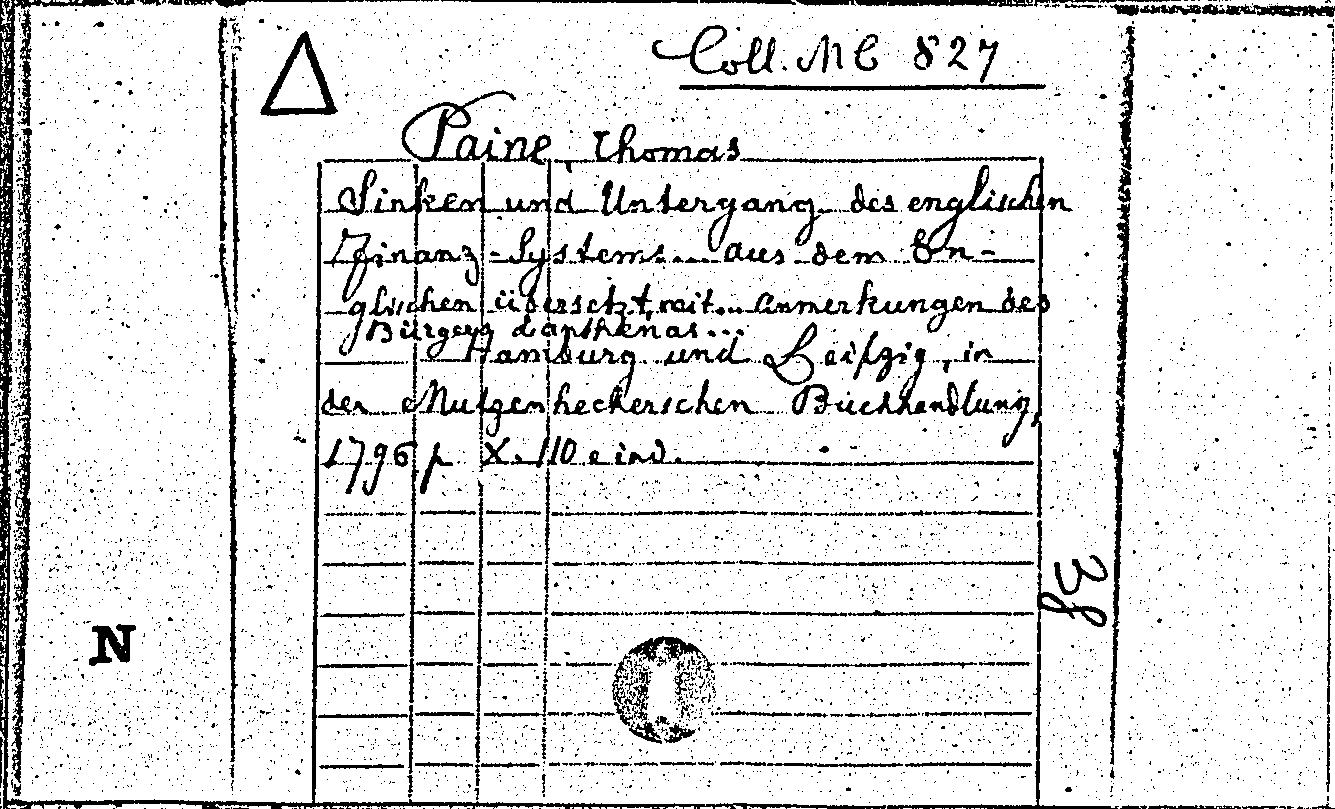 Coll. MC 827
Paine, Thomas
Sinken und Untergang des englischen
Finanz-Systems... aus dem En-
glischen übersetzt, mit... anmerkungen des
Bürgers Lanthenas...
Hamburg und Leipzig, in
der Mutzenbecherschen Buchhandlung,
1796 p X. 110 e ind.
38
N